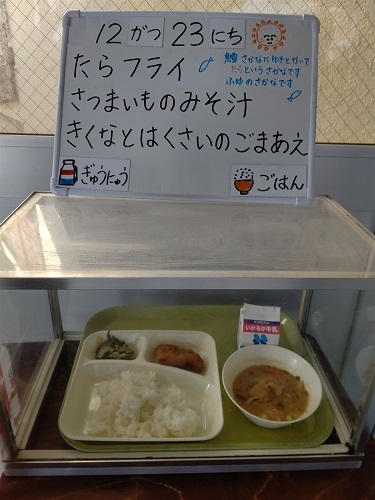 12がつ23にち
たらフライ
鱈 さかなにゆきとかいて
たらというさかなです
ふゆのさかなです
さつまいものみそ汁
きくなとはくさいのごまあえ
ぎゅうにゅう
ごはん
いかるが牛乳